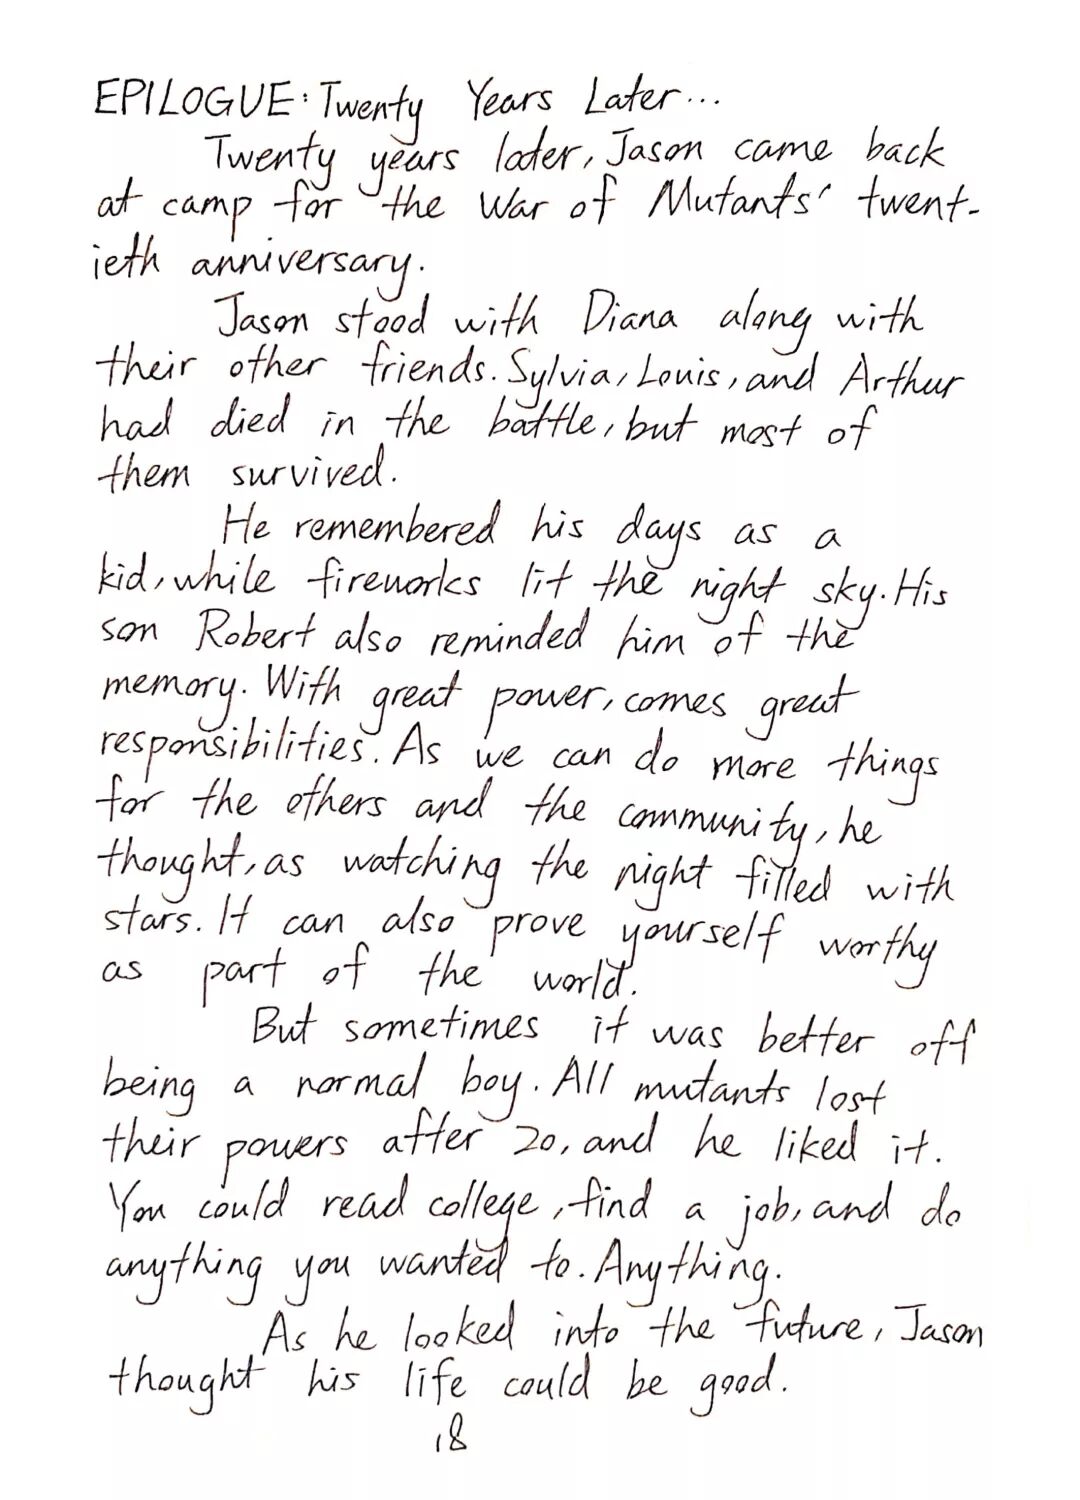 EPILOGUE: Twenty Years Later...
Twenty years later, Jason came back
at camp for the War of Mutants' twent-
ieth anniversary.
Jason stood with Diana along with
their other friends. Sylvia, Louis, and Arthur
had died in the battle, but most of
them survived.
He remembered his days as a
kid, while fireworks lit the night sky. His
son Robert also reminded him of the
memory. With great power, comes great
responsibilities. As we can do more things
for the others and the community, he
thought, as watching the night filled with
stars. It can also prove yourself worthy
as part of the world.
But sometimes it was better off
being a normal boy. All mutants lost
their powers after 20, and he liked it.
You could read college, find a job, and do
anything you wanted to. Anything.
As he looked into the future, Jason
thought his life could be good.
18